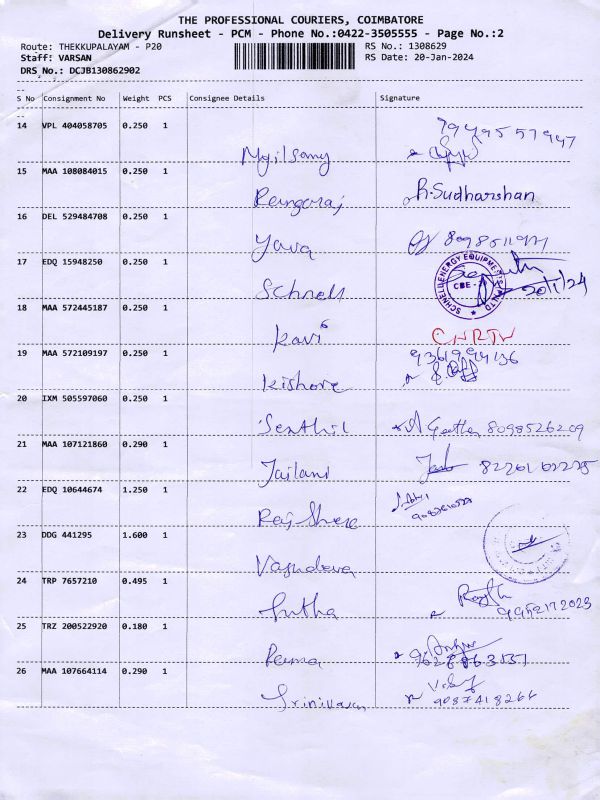 THE PROFESSIONAL COURIERS, COIMBATORE
Delivery Runsheet - PCM - Phone No.:0422-3505555 - Page No.:2
Route: THEKKUPALAYAM - P20 RS No.: 1308629
Staff: VARSAN RS Date: 20-Jan-2024
DRS No.: DCJB130862902
S No Consignment No Weight PCS Consignee Details Signature
14 VPL 404058705 0.250 1
Mylsamy
15 MAA 108084015 0.250 1
Rangaraj R.Sudharshan
16 DEL 529484708 0.250 1
Yava
17 EDQ 15948250 0.250 1
SCHNELL ENERGY EQUIPMENTS
CBE
Schnell 20/1/24
18 MAA 572445187 0.250 1
Kavi
19 MAA 572109197 0.250 1
Kishore
20 IXM 505597060 0.250 1
Senthil Geetha 8098526209
21 MAA 107121860 0.290 1
Jailani
22 EDQ 10644674 1.250 1
Raj Shree
23 DDG 441295 1.600 1
Vasudeva
24 TRP 7657210 0.495 1
9952172023
25 TRZ 200522920 0.180 1
26 MAA 107664114 0.290 1
Srinivasan 9087418266